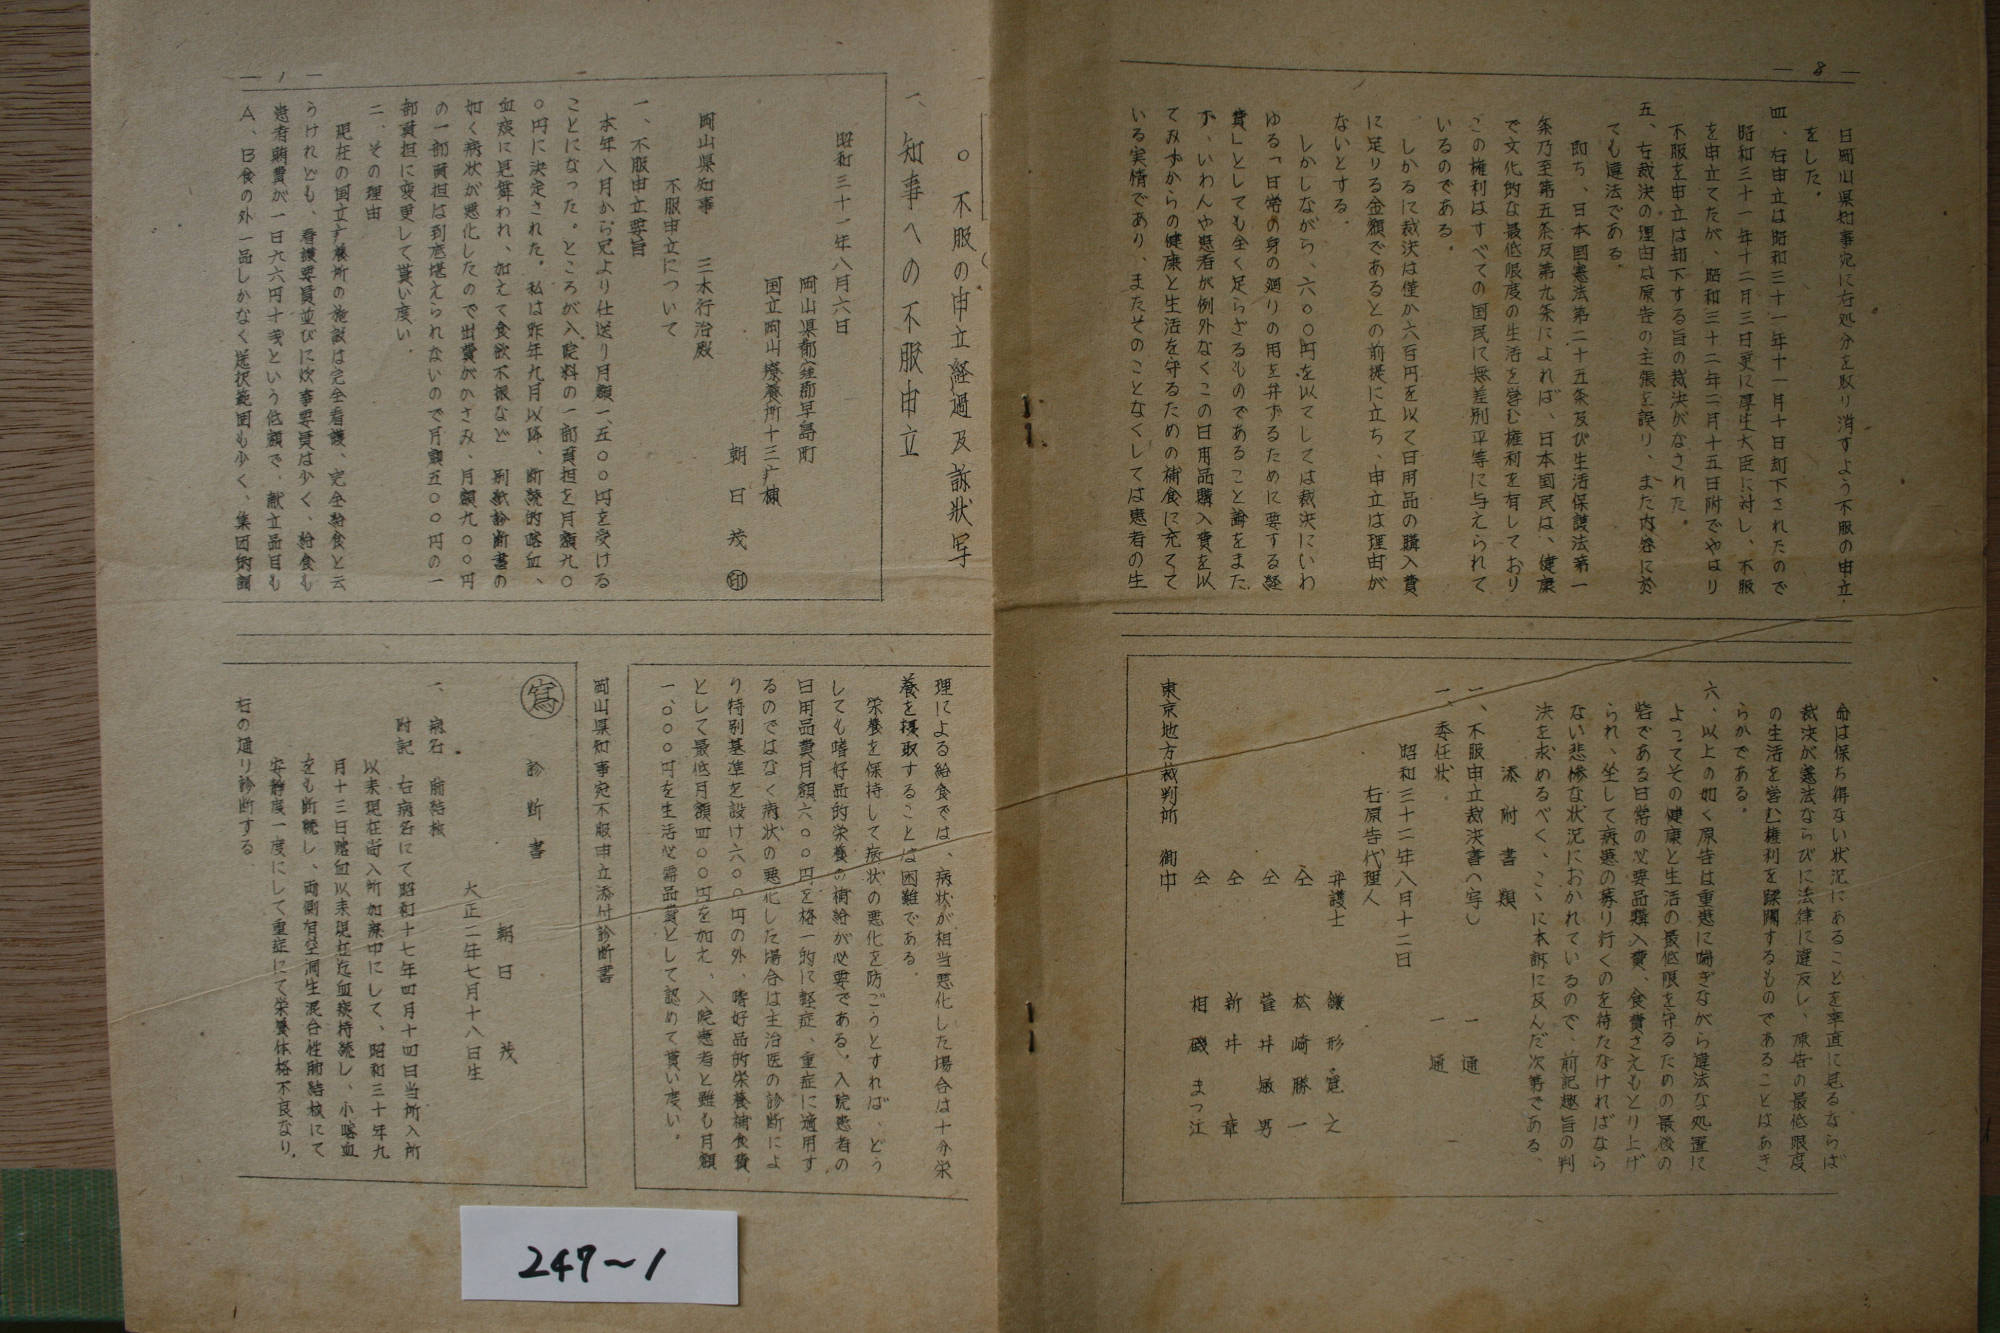 — 8 —
日岡山県知事宛に右処分を取り消すよう不服の申立
をした。
四、右申立は昭和三十一年十一月十日却下されたので
昭和三十一年十二月三日更に厚生大臣に対し、不服
を申立てたが、昭和三十二年二月十五日附でやはり
不服を申立は却下する旨の裁決がなされた。
五、右裁決の理由は原告の主張を誤り、また内容に於
ても違法である。
即ち、日本国憲法第二十五条及び生活保護法第一
条乃至第五条及第九条によれば、日本国民は、健康
で文化的な最低限度の生活を営む権利を有しており
この権利はすべての国民に無差別平等に与えられて
いるのである。
しかるに裁決は僅か六百円を以て日用品の購入費
に足りる金額であるとの前提に立ち、申立は理由が
ないとする。
しかしながら、六〇〇円を以てしては裁決にいわ
ゆる「日常の身の廻りの用を弁ずるために要する経
費」としても全く足らざるものであること論をまた
ず、いわんや患者が例外なくこの日用品購入費を以
てみずからの健康と生活を守るための補食に充てて
いる実情であり、またそのことなくしては患者の生
命は保ち得ない状況にあることを率直に見るならば
裁決が憲法ならびに法律に違反し、原告の最低限度
の生活を営む権利を蹂躙するものであることはあき
らかである。
六、以上の如く原告は重患に喘ぎながら違法な処置に
よってその健康と生活の最低限を守るための最後の
砦である日常の必要品購入費、食費さえもとり上げ
られ、坐して病患の募り行くのを待たなければなら
ない悲惨な状況におかれているので、前記趣旨の判
決を求めるべく、こゝに本訴に及んだ次第である。
添附書類
一、不服申立裁決書(写し) 一通
一、委任状 一通
昭和三十二年八月十二日
右原告代理人
弁護士 鎌形寛之
仝 松崎勝一
仝 菅井敏男
仝 新井章
仝 相磯まつ江
東京地方裁判所 御中
○不服の申立経過及訴状写
一、知事への不服申立
昭和三十一年八月六日
岡山県都窪郡早島町
国立岡山療養所十三病棟
朝日茂 ㊞
岡山県知事 三木行治殿
不服申立について
一、不服申立要旨
本年八月から兄より仕送り月額一、五〇〇円を受ける
ことになった。ところが入院料の一部負担を月額九〇
〇円に決定された。私は昨年九月以降、断続的喀血、
血痰に見舞われ、加えて食欲不振など 別紙診断書の
如く病状が悪化したので出費がかさみ、月額九〇〇円
の一部負担は到底堪えられないので月額五〇〇円の一
部負担に変更して貰い度い。
二、その理由
現在の国立療養所の施設は完全看護、完全給食と云
うけれども、看護要員並びに炊事要員は少く、給食も
患者賄費が一日九六円十銭という低額で、献立品目も
A、B食の外一品しかなく選択範囲も少く、集団的調
— 1 —
理による給食では、病状が相当悪化した場合は十分栄
養を摂取することは困難である。
栄養を保持して病状の悪化を防ごうとすれば、どう
しても嗜好品的栄養の補給が必要である。入院患者の
日用品費月額六〇〇円を格一的に軽症、重症に適用す
るのではなく病状の悪化した場合は主治医の診断によ
り特別基準を設け六〇〇円の外、嗜好品的栄養補食費
として最低月額四〇〇円を加え、入院患者と雖も月額
一、〇〇〇円を生活必需品費として認めて貰い度い。
岡山県知事宛不服申立添付診断書
㊢ 診断書
朝日茂
大正二年七月十八日生
一、病名 肺結核
附記 右病名にて昭和十七年四月十四日当所入所
以来現在尚入所加療中にして、昭和三十年九
月十三日喀血以来現在迄血痰持続し、小喀血
をも断続し、両側有空洞性混合性肺結核にて
安静度一度にして重症にて栄養体格不良なり。
右の通り診断する。
247~1